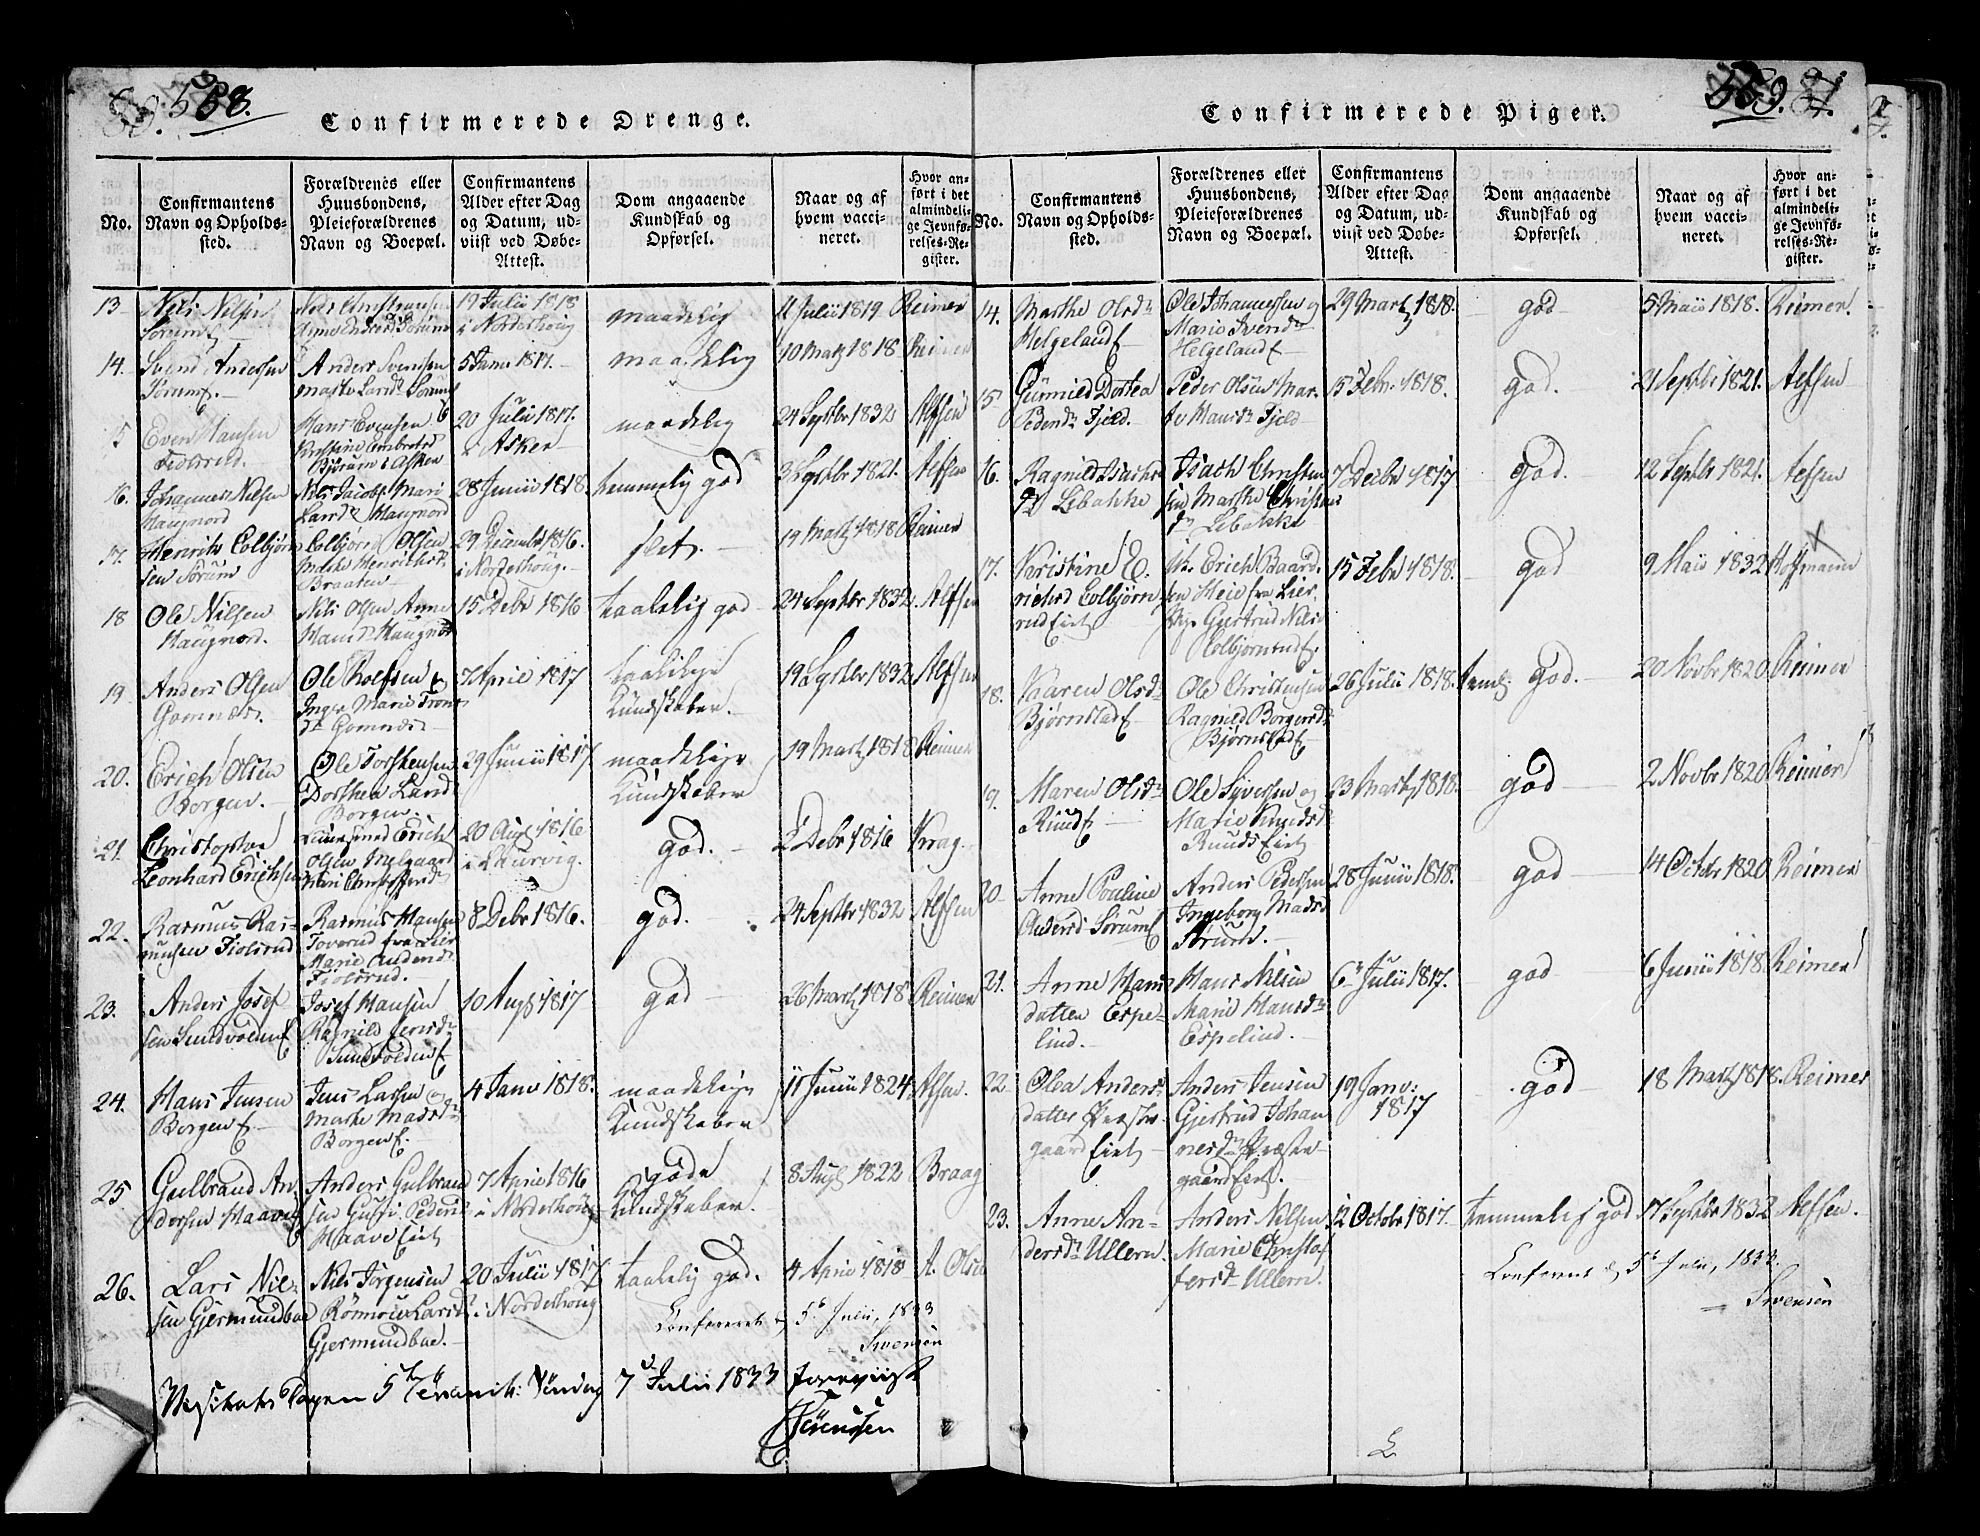 80. 558.
Confirmerede Drenge.
No.
Confirmantens
Navn og Opholds-
sted.
Forældrenes eller
Huusbondens,
Pleieforældrenes
Navn og Boepæl.
Confirmantens
Alder efter Dag
og Datum, ud-
viist ved Døbe-
Attest.
Dom angaaende
Kundskab og
Opførsel.
Naar og af
hvem vacci-
neret.
Hvor an-
ført i det
almindeli-
ge Jevnfø-
relses-Re-
gister.
13 Niels Nilsen
Sørum
19 Julii 1818
i Norderhoug
maadelig
11 Julii 1819 Reimer
14. Svend Andersen
Sørum
Anders Svensen
Marthe Larsd. Sørum
5 Janv 1817.
maadelig
10 Martz 1818 Reimer
5 Even Hansen
Fiolsrud.
Hans Evensen
Kirstine Embretsd
Bjørum i Asker
20 Julii 1817.
i Asker
maadelig
24 Septbr 1832 Alfsen
16. Johannes Nilsen
Haugnord
Niels Jacobs. Mari
Larsd. Haugnord
28 Junii 1818.
temmelig god
3 Septbr 1821. Alfsen
17. Henrik Colbjørn
sen Sørum
Colbjørn Olsen
Marthe Henriksd.
Braaten
29 Decembr 1816.
i Norderhoug.
slet.
19 Martz 1818 Reimer
18 Ole Nilsen
Haugnord.
Niels Olsen Anne
Hansd. Haugnord
15 Debr 1816
taalelig god
24 Septbr 1832. Alfsen
19 Anders Olsen
Gomnæs.
Ole Rolfsen &
Inger Marie Trons
dr Gomnæs
7 April 1817
taalelige
Kundskaber.
19 Septbr 1832 Alfsen
20. Erich Olsen
Borgen.
Ole Torstensen
Dorthea Larsd
Borgen
29 Junii 1817.
maadelige
Kundskaber
19 Martz 1818 Reimer
21. Christopher
Leonhard Erichsen
Erich
Olsen
Mari Christoffersd.
20 Aug 1816
i Laurvig.
god.
2 Debr 1816 Krag
22. Rasmus Ras-
musen Fiolsrud
Rasmus Hansen
Toverud fra Lier
Marie Andersd.
Fiolsrud.
8 Debr 1816.
god.
24 Septbr 1832 Alfsen
23. Anders Josef
sen Sundvolden
Josef Hansen
Ragnild Jensd.
Sundvolden
10 Aug 1817
god
26 Martz 1818 Reimer
24. Hans Jensen
Borgen
Jens Larsen og
Marthe Madsd.
Borgen
4 Janv 1818.
maadelige
Kundskaber
11 Junii 1824 Alfsen.
25 Gulbrand An
dersen Haave
Anders Gulbrand
sen Pedersd.
Haave Eiet
7 April 1816
i Norderhoug
gode
Kundskaber.
8 Aug 1822 Braag
26. Lars Nil-
sen Gjermundboe
Niels Jørgensen
Rønnou Larsd.
Gjermundboe.
20 Julii 1817
i Norderhoug
taalelig god.
4 April 1818 A. Olsen
Confereret d 5te Julii, 1833
Sørensen
5te Søndag 7d Julii 1833 foreviist
Sørensen
559. 81.
Confirmerede Piger.
No.
Confirmantens
Navn og Opholds-
sted.
Forældrenes eller
Huusbondens,
Pleieforældrenes
Navn og Boepæl.
Confirmantens
Alder efter Dag
og Datum, ud-
viist ved Døbe-
Attest.
Dom angaaende
Kundskab og
Opførsel.
Naar og af
hvem vacci-
neret.
Hvor an-
ført i det
almindeli-
ge Jevnfø-
relses-Re-
gister.
14. Marthe Olsdr
Helgeland
Ole Johannessen og
Marie Iversdr
Helgeland
29 Martz 1818.
god
5 Maii 1818. Reimer.
15 Gunnild Dortea
Pedersdr Fjeld.
Peder Olsen Mar-
te Hansdr Fjeld
15 Febr. 1818.
god.
21 Septbr 1821. Alfsen
16. Ragnild Isachs
dr Lebakke
Isach Christen
sen Marthe Christens
dr Lebakke
7 Decbr 1817
god.
12 Septbr 1821. Alfsen
17. Kristine E.
richsd Colbjørn
rud Eiet
Erich Baard
sen Heie fra Lier
Pige Gjertrud Niels
Colbjørnrud
15 Febr 1818.
god
9 Maii 1832 Hoffmann
18. Karen Olsdr
Bjørnstad
Ole Christensen
Ragnild Borgersdr
Bjørnstad
26 Julii 1818.
teml. god.
20 Novbr 1820 Reimer
19. Maren Olsdr
Ruud
Ole Syversen og
Marie Knudsd
Ruuds Eiet
23 Martz 1818.
god
2 Novbr 1820 Reimer
20. Anne Pouline
Andersd Sørum
Anders Pedersen
Ingeborg Madsd
Sørum.
28 Junii 1818.
god
14 Octobr 1820 Reimer
21. Anne Hans
datter Espe-
lind.
Hans Nilsen
Marie Hansdr
Espelind.
6 Julii 1817.
god
6 Junii 1818. Reimer
22 Olea Anders
datter Præste-
gaard Eiet
Anders Jensen
Gjertrud Johan
nesdr Præste-
gaard Eiet.
19 Janv:
1817
god
18 Martz 1818. Reimer
23. Anne An-
dersdr Ullern.
Anders Nilsen
Marie Christof
fersdr Ullern.
12 Octobr 1817.
temmelig god
17 Septbr 1832 Alfsen.
Confereret d 5te Julii, 1833.
Sørensen